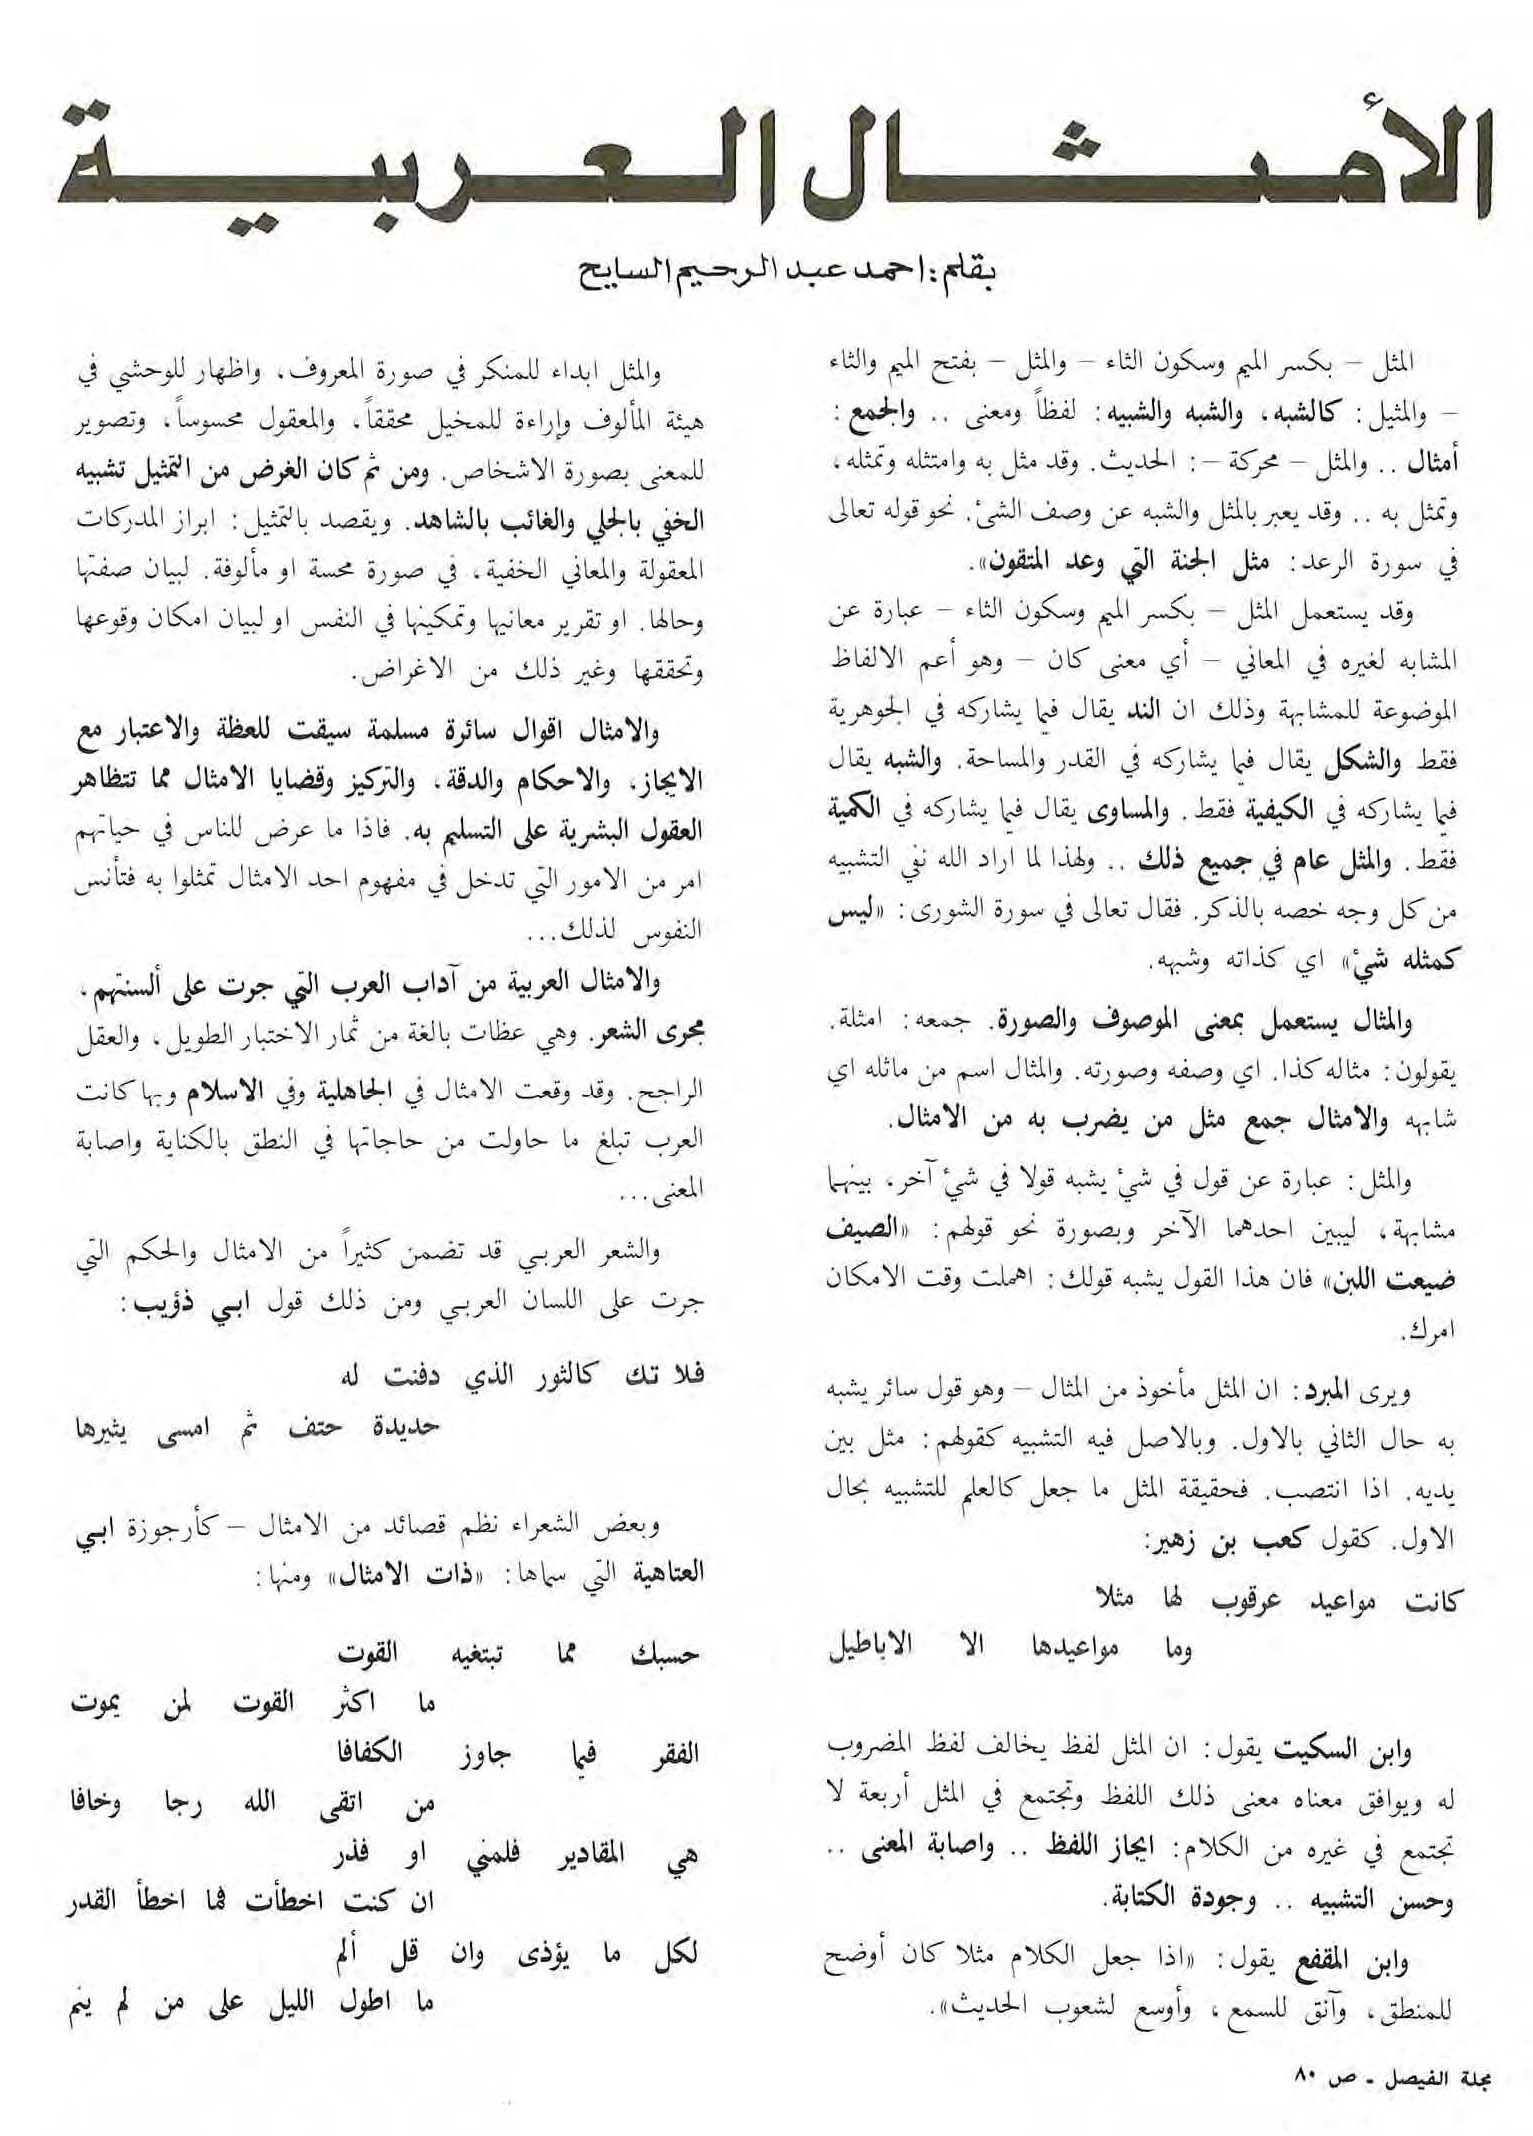 الأمثال العربية
بقلم: احمد عبد الرحيم السايح
المثل – بكسر الميم وسكون الثاء – والمثل – بفتح الميم والثاء
– والمثيل: كالشبه، والشبه والشبيه: لفظاً ومعنى .. والجمع:
أمثال .. والمثل – محركة –: الحديث. وقد مثل به وامتثله وتمثله،
وتمثل به .. وقد يعبر بالمثل والشبه عن وصف الشئ. نحو قوله تعالى
في سورة الرعد: مثل الجنة التي وعد المتقون».
وقد يستعمل المثل – بكسر الميم وسكون الثاء – عبارة عن
المشابه لغيره في المعاني – أي معنى كان – وهو أعم الالفاظ
الموضوعة للمشابهة وذلك ان الند يقال فيما يشاركه في الجوهرية
فقط والشكل يقال فيما يشاركه في القدر والمساحة. والشبه يقال
فيما يشاركه في الكيفية فقط. والمساوى يقال فيما يشاركه في الكمية
فقط. والمثل عام في جميع ذلك .. ولهذا لما اراد الله نفي التشبيه
من كل وجه خصه بالذكر. فقال تعالى في سورة الشورى: «ليس
كمثله شيْ» اي كذاته وشبهه.
والمثال يستعمل بمعنى الموصوف والصورة. جمعه: امثلة.
يقولون: مثاله كذا. اي وصفه وصورته. والمثال اسم من ماثله اي
شابهه والامثال جمع مثل من يضرب به من الامثال.
والمثل: عبارة عن قول في شيْ يشبه قولا في شيْ آخر، بينهما
مشابهة، ليبين احدهما الآخر وبصورة نحو قولهم: «الصيف
ضيعت اللبن» فان هذا القول يشبه قولك: اهملت وقت الامكان
امرك.
ويرى المبرد: ان المثل مأخوذ من المثال – وهو قول سائر يشبه
به حال الثاني بالاول. وبالاصل فيه التشبيه كقولهم: مثل بين
يديه. اذا انتصب. فحقيقة المثل ما جعل كالعلم للتشبيه بحال
الاول. كقول كعب بن زهير:
كانت مواعيد عرقوب لها مثلا
وما مواعيدها الا الاباطيل
وابن السكيت يقول: ان المثل لفظ يخالف لفظ المضروب
له ويوافق معناه معنى ذلك اللفظ وتجتمع في المثل أربعة لا
تجتمع في غيره من الكلام: ايجاز اللفظ .. واصابة المعنى ..
وحسن التشبيه .. وجودة الكتابة.
وابن المقفع يقول: «اذا جعل الكلام مثلا كان أوضح
للمنطق، وآنق للسمع، وأوسع لشعوب الحديث».
والمثل ابداء للمنكر في صورة المعروف، واظهار للوحشي في
هيئة المألوف وإراءة للمخيل محققاً، والمعقول محسوساً، وتصوير
للمعنى بصورة الاشخاص. ومن ثم كان الغرض من التمثيل تشبيه
الخفي بالجلي والغائب بالشاهد. ويقصد بالتمثيل: ابراز المدركات
المعقولة والمعاني الخفية، في صورة محسة او مألوفة. لبيان صفتها
وحالها. او تقرير معانيها وتمكينها في النفس او لبيان امكان وقوعها
وتحققها وغير ذلك من الاغراض.
والامثال اقوال سائرة مسلمة سيقت للعظة والاعتبار مع
الايجاز، والاحكام والدقة، والتركيز وقضايا الامثال مما تتظاهر
العقول البشرية على التسليم به. فاذا ما عرض للناس في حياتهم
امر من الامور التي تدخل في مفهوم احد الامثال تمثلوا به فتأنس
النفوس لذلك...
والامثال العربية من آداب العرب التي جرت على ألسنتهم،
مجرى الشعر. وهي عظات بالغة من ثمار الاختبار الطويل، والعقل
الراجح. وقد وقعت الامثال في الجاهلية وفي الاسلام وبها كانت
العرب تبلغ ما حاولت من حاجاتها في النطق بالكناية واصابة
المعنى...
والشعر العربي قد تضمن كثيراً من الامثال والحكم التي
جرت على اللسان العربي ومن ذلك قول ابي ذؤيب:
فلا تك كالثور الذي دفنت له
حديدة حتف ثم امسى يثيرها
وبعض الشعراء نظم قصائد من الامثال – كأرجوزة ابي
العتاهية التي سماها: «ذات الامثال» ومنها:
حسبك مما تبتغيه القوت
ما اكثر القوت لمن يموت
الفقر فيما جاوز الكفافا
من اتقى الله رجا وخافا
هي المقادير فلمني او فذر
ان كنت اخطأت فما اخطأ القدر
لكل ما يؤذى وان قل ألم
ما اطول الليل على من لم ينم
مجلة الفيصل - ص ٨٠